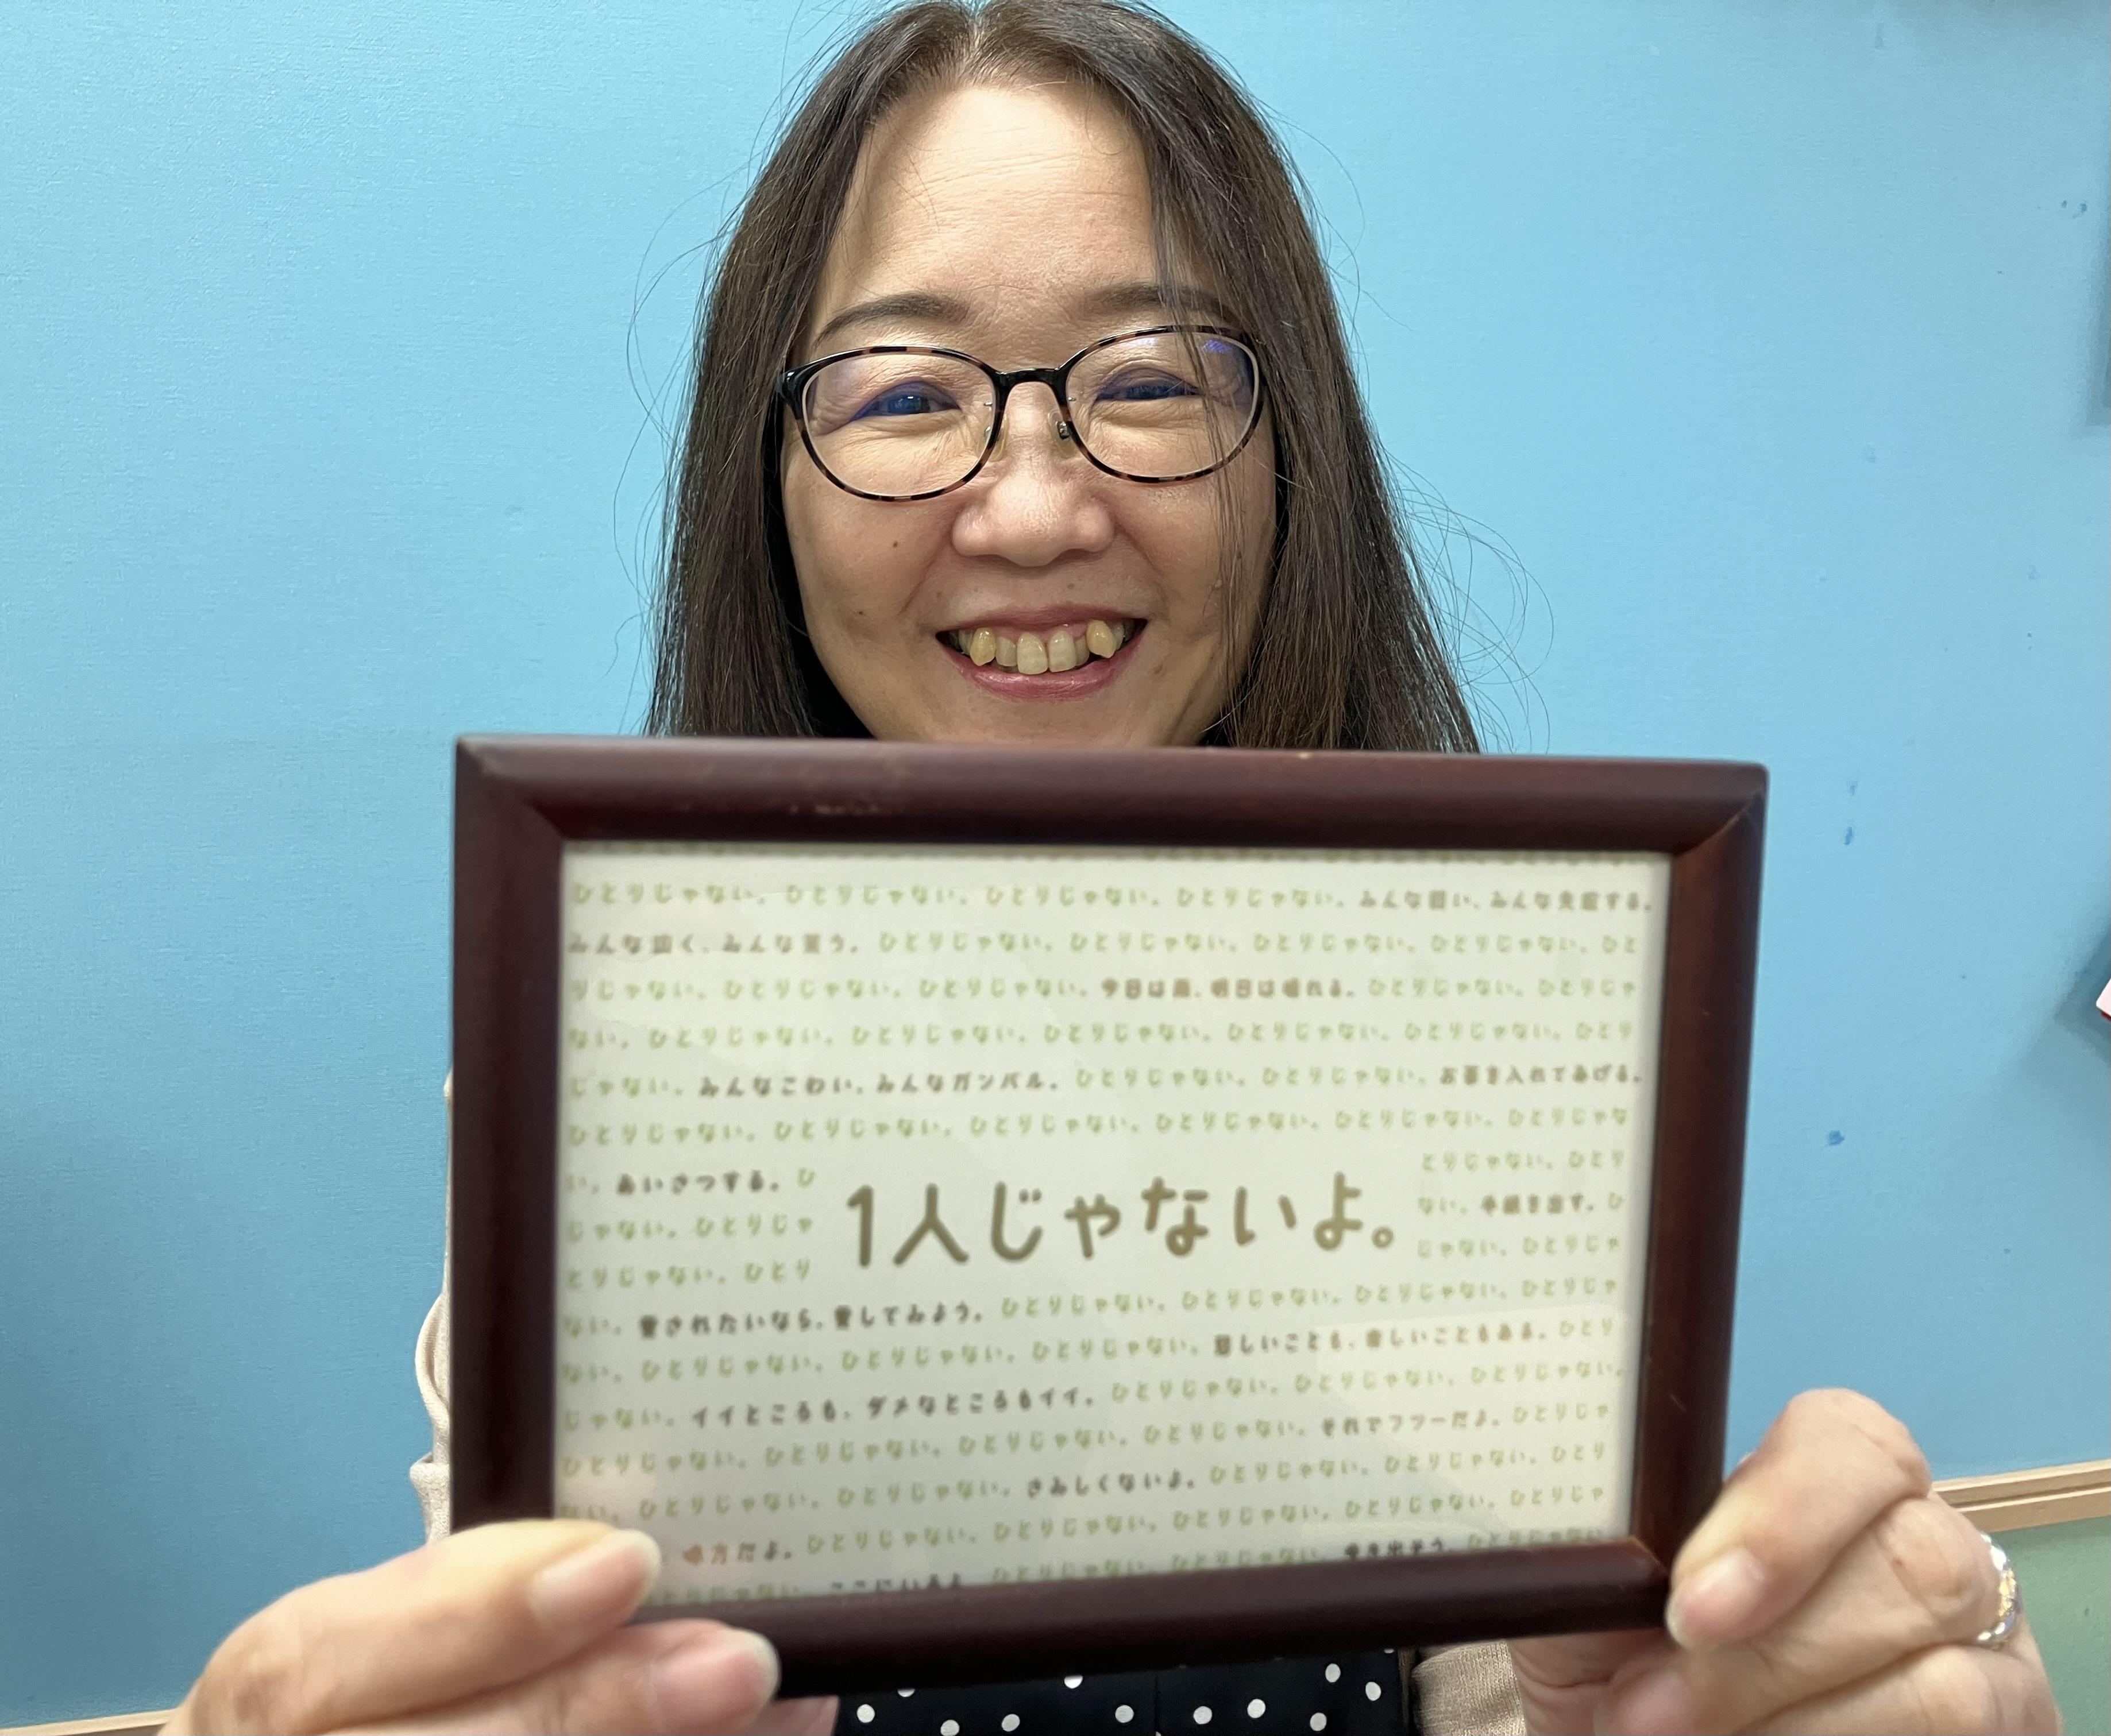 ひとりじゃない。ひとりじゃない。ひとりじゃない。ひとりじゃない。みんな弱い、みんな失敗する。
みんな泣く、みんな笑う。ひとりじゃない。ひとりじゃない。ひとりじゃない。ひとりじゃない。ひと
りじゃない。ひとりじゃない。ひとりじゃない。今日は雨、明日は晴れる。ひとりじゃない。ひとりじゃ
ない。ひとりじゃない。ひとりじゃない。ひとりじゃない。ひとりじゃない。ひとりじゃない。ひとり
じゃない。みんなこわい、みんなガンバル。ひとりじゃない。ひとりじゃない。お茶を入れてあげる。
ひとりじゃない。ひとりじゃない。ひとりじゃない。ひとりじゃない。ひとりじゃな
い。あいさつする。ひ
とりじゃない。ひとり
ない。手紙を出す。ひ
1人じゃないよ。
じゃない。ひとりじゃ
じゃない。ひとりじゃ
とりじゃない。ひとり
ない。愛されたいなら、愛してみよう。ひとりじゃない。ひとりじゃない。ひとりじゃない。ひとりじゃ
ない。ひとりじゃない。ひとりじゃない。ひとりじゃない。悲しいことも、楽しいこともある。ひとり
じゃない。イイところも、ダメなところもイイ。ひとりじゃない。ひとりじゃない。ひとりじゃない。
ひとりじゃない。ひとりじゃない。ひとりじゃない。ひとりじゃない。それでフツーだよ。ひとりじゃ
ない。ひとりじゃない。ひとりじゃない。さみしくないよ。ひとりじゃない。ひとりじゃない。ひとり
味方だよ。ひとりじゃない。ひとりじゃない。ひとりじゃない。ひとりじゃない。ひとりじゃ
とりじゃない。ここにいるよ。ひとりじゃない。ひとりじゃない。ひとりじゃない